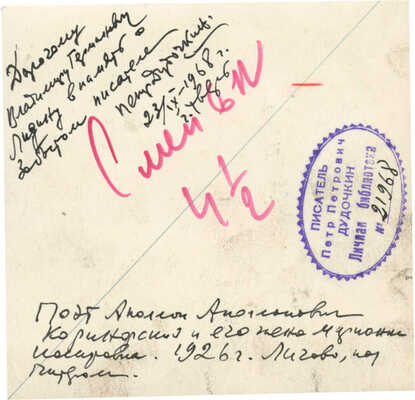 Дорогому
Владимиру Германовичу
Лидину в память о
забытом писателе
Петр Дудочкин.
23/IX-1968 г.
г.
4 1/2
ПИСАТЕЛЬ
Петр Петрович
ДУДОЧКИН
Личная библиотека
№ 21968
Поэт Аполлон Аполлонович
Коринфский и его жена Марианна
Иосифовна. 1926 г. Лигово, под
Питером.